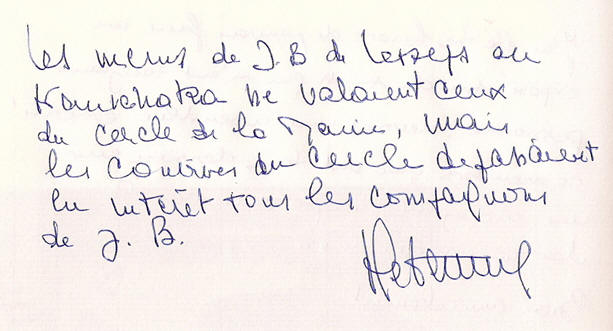 Les menus de J.B de Lesseps au
Kamtchatka ne valaient ceux
du cercle de la Marine, mais
les convives du cercle dépassaient
en intérêt tous les compagnons
de J. B.